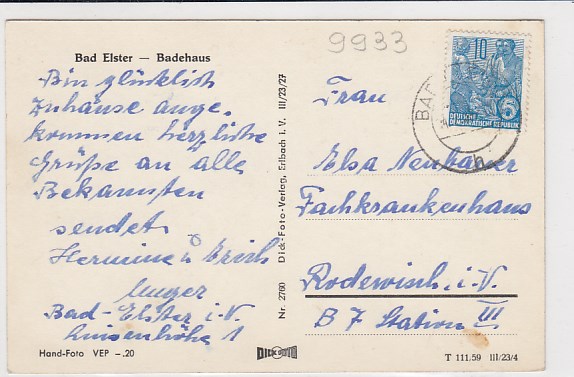 9933
Bad Elster — Badehaus
Bin glücklich
Zuhause ange-
kommen herzliche
Grüße an alle
Bekannten
sendet
Hermine u Erich
Unger
Bad-Elster i. V.
Luisenhöhe 1
Hand-Foto VEP -.20
Nr. 2760 Dick-Foto-Verlag, Erlbach i. V. III/23/27
DICK FOTO
10
DEUTSCHE
DEMOKRATISCHE REPUBLIK
5
BAD
Frau
Elsa Neubauer
Fachkrankenhaus
Rodewisch i. V.
B 7 Station III
T 111.59 III/23/4